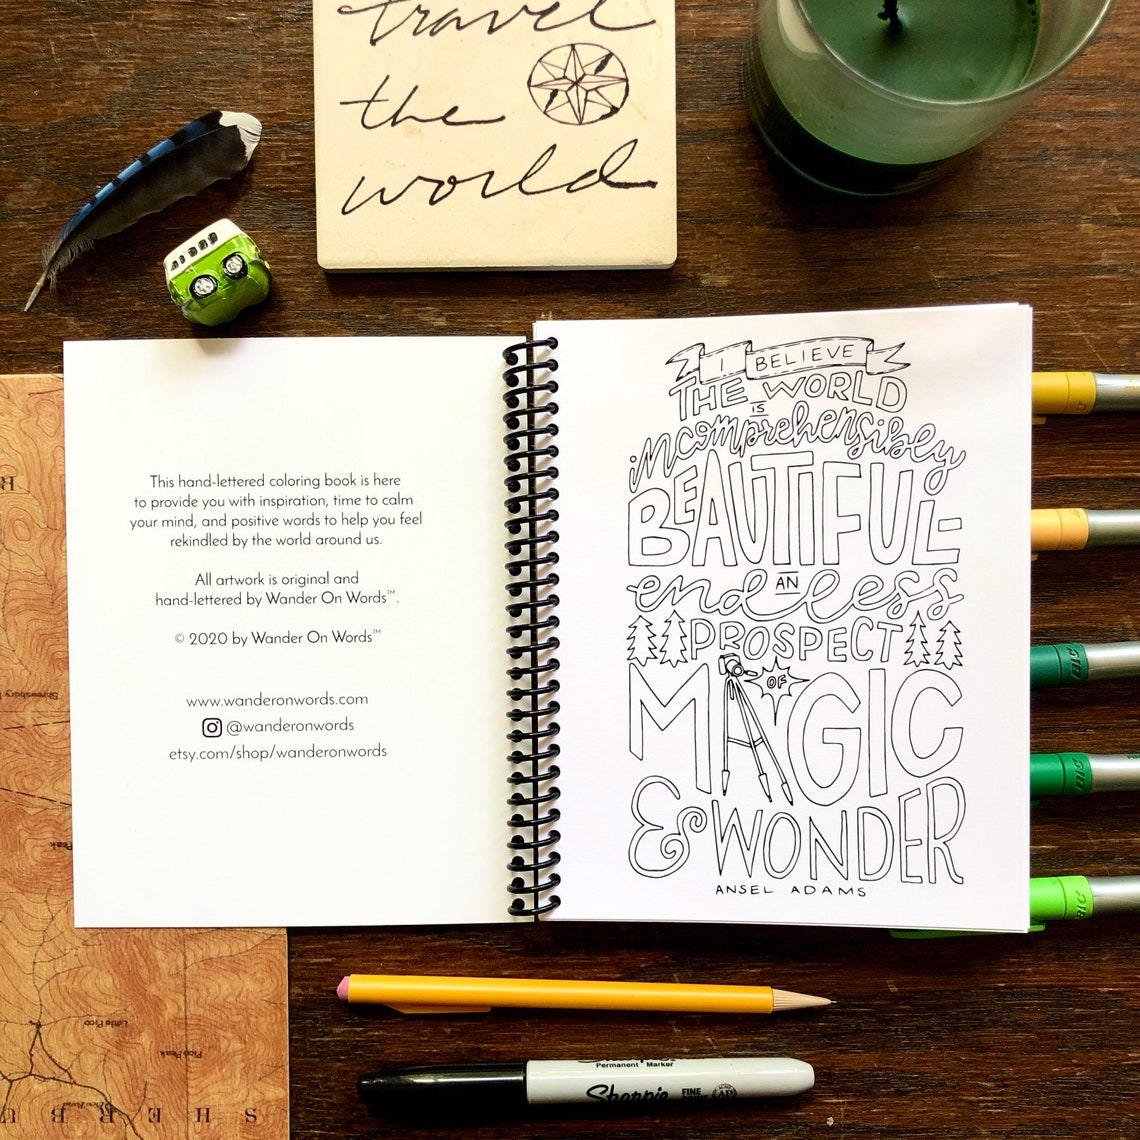 travel
the
world
This hand-lettered coloring book is here
to provide you with inspiration, time to calm
your mind, and positive words to help you feel
rekindled by the world around us.
All artwork is original and
hand-lettered by Wander On Words™.
© 2020 by Wander On Words™
www.wanderonwords.com
@wanderonwords
etsy.com/shop/wanderonwords
I BELIEVE
THE WORLD
IS
incomprehensibly
BEAUTIFUL-
AN
endless
PROSPECT
OF
MAGIC
& WONDER
ANSEL ADAMS
BIC
BIC
BIC
Permanent Marker
Sharpie FINE
AP
Shrewsbury Peak
Little Pico
Pico Peak
SHERBU